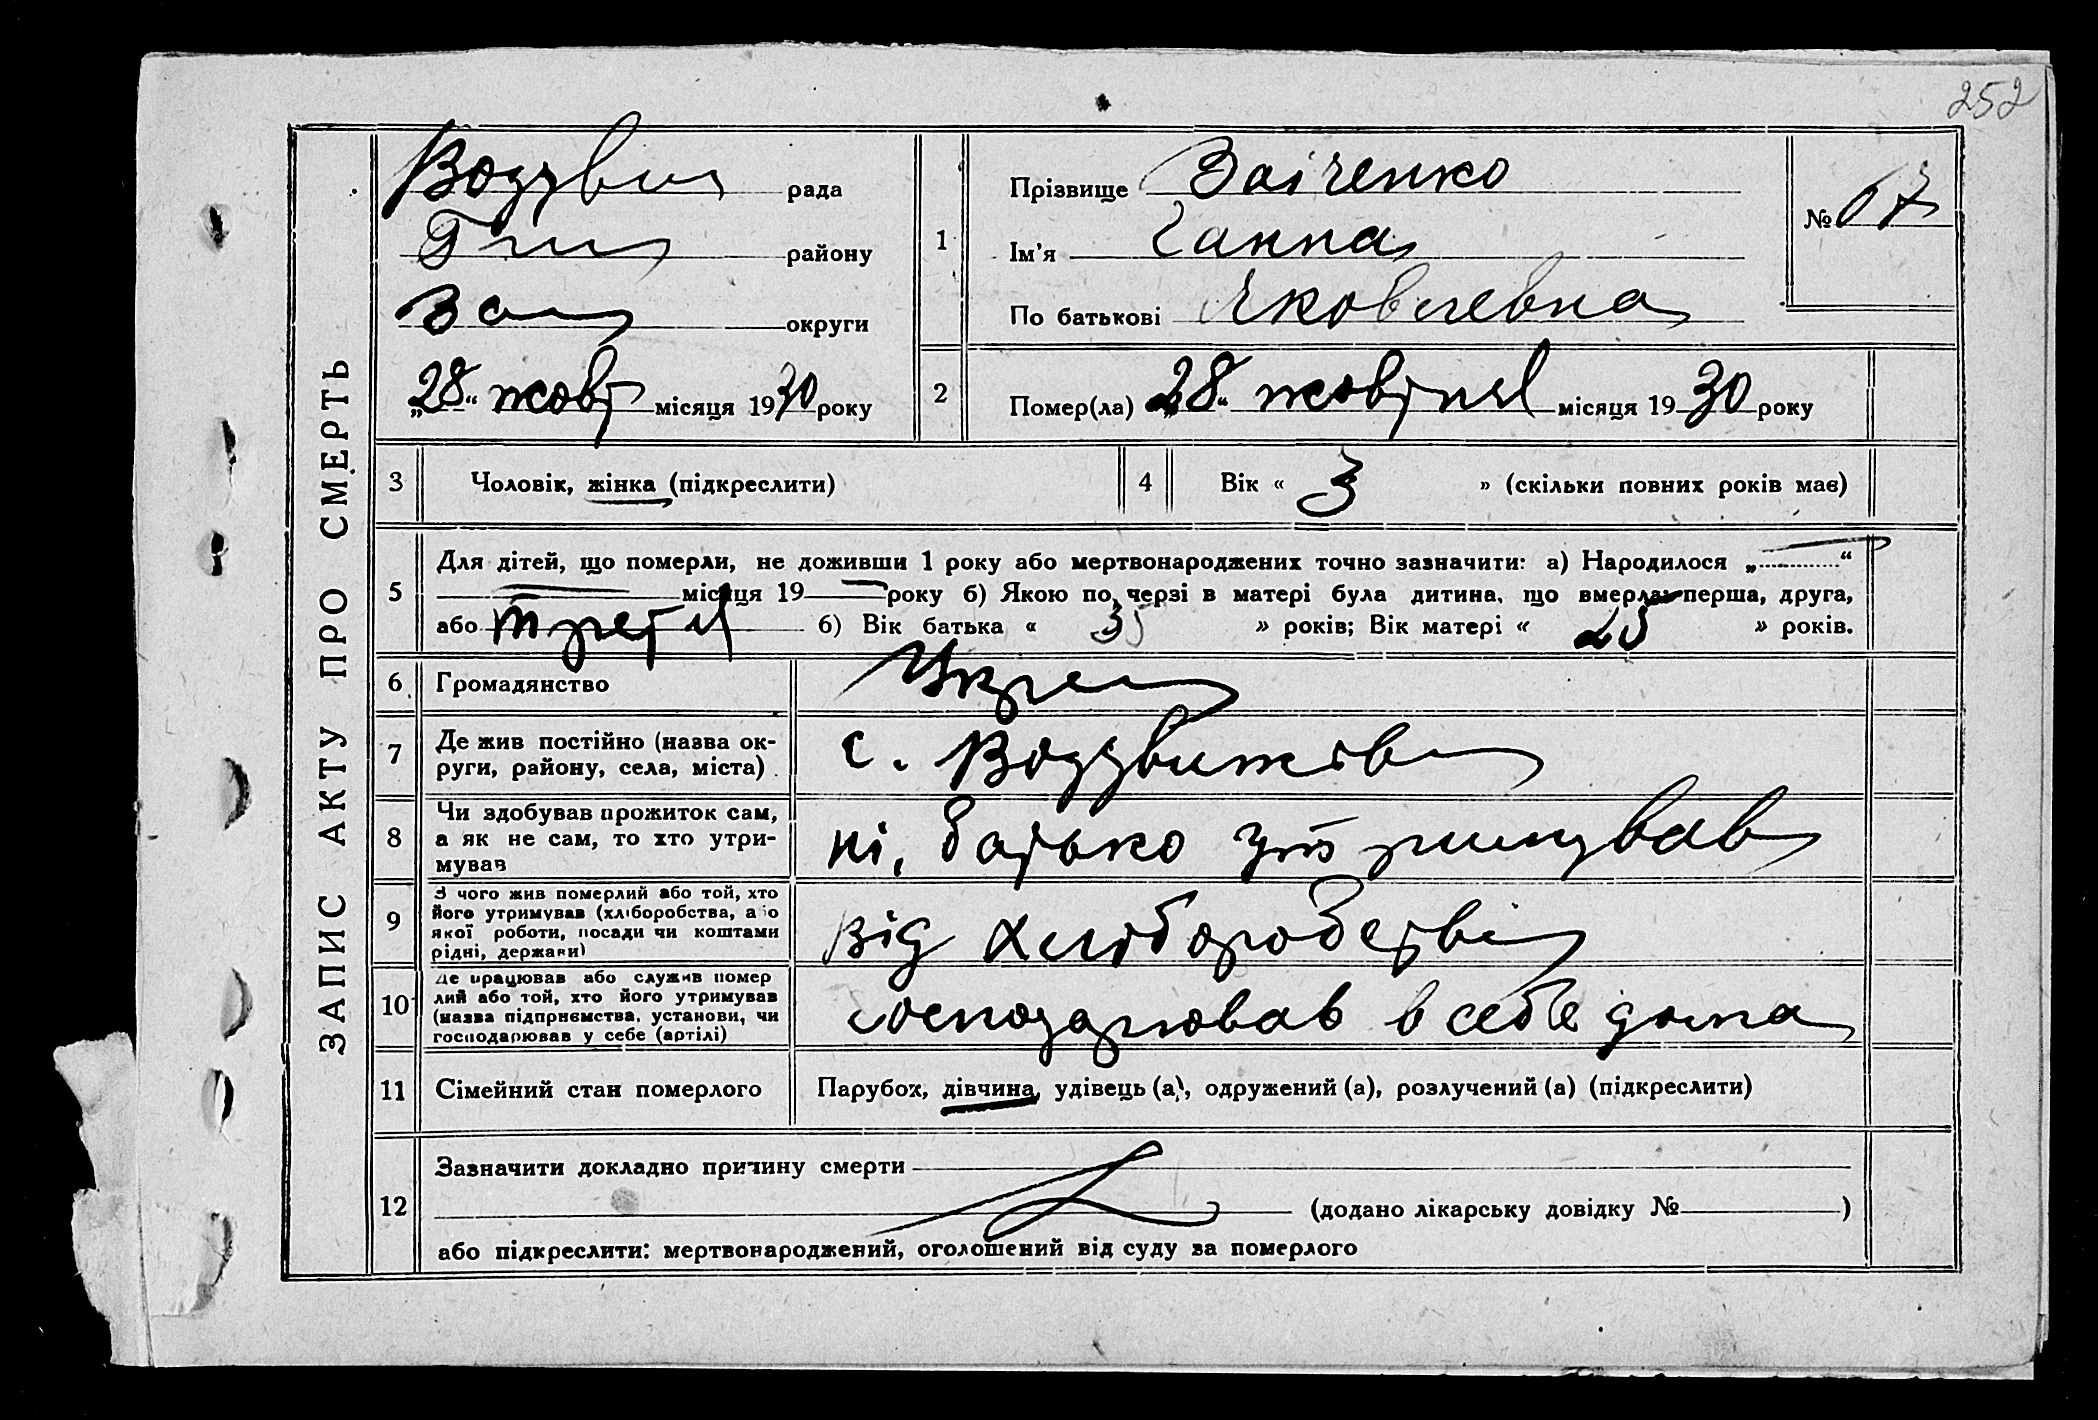 252
ЗАПИС АКТУ ПРО СМЕРТЬ
Воздвиж рада
району
Зап округи
„28“ жовт місяця 1930 року
1
Прізвище Заіченко
Ім’я Ганна
По батькові Яковлевна
№ 67
2
Помер(ла) „28“ жовтня місяця 1930 року
3 Чоловік, жінка (підкреслити)
4 Вік « 3 » (скільки повних років має)
5
Для дітей, що померли, не доживши 1 року або мертвонароджених точно зазначити: а) Народилося „ “
місяця 19 року б) Якою по черзі в матері була дитина, що вмерла: перша, друга,
або третя б) Вік батька « 35 » років; Вік матері « 25 » років.
6 Громадянство Укра
7 Де жив постійно (назва ок-
руги, району, села, міста)
с. Воздвижівка
8 Чи здобував прожиток сам,
а як не сам, то хто утри-
мував
ні, батько утримував
9 З чого жив померлий або той, хто
його утримував (хліборобства, або
якої роботи, посади чи коштами
рідні, держави)
від хліборобства
10 Де працював або служив помер
лий або той, хто його утримував
(назва підприємства, установи, чи
господарював у себе (артілі)
господарював в себе дома
11 Сімейний стан померлого Парубок, дівчина, удівець (а), одружений (а), розлучений (а) (підкреслити)
12
Зазначити докладно причину смерти
(додано лікарську довідку № )
або підкреслити: мертвонароджений, оголошений від суду за померлого